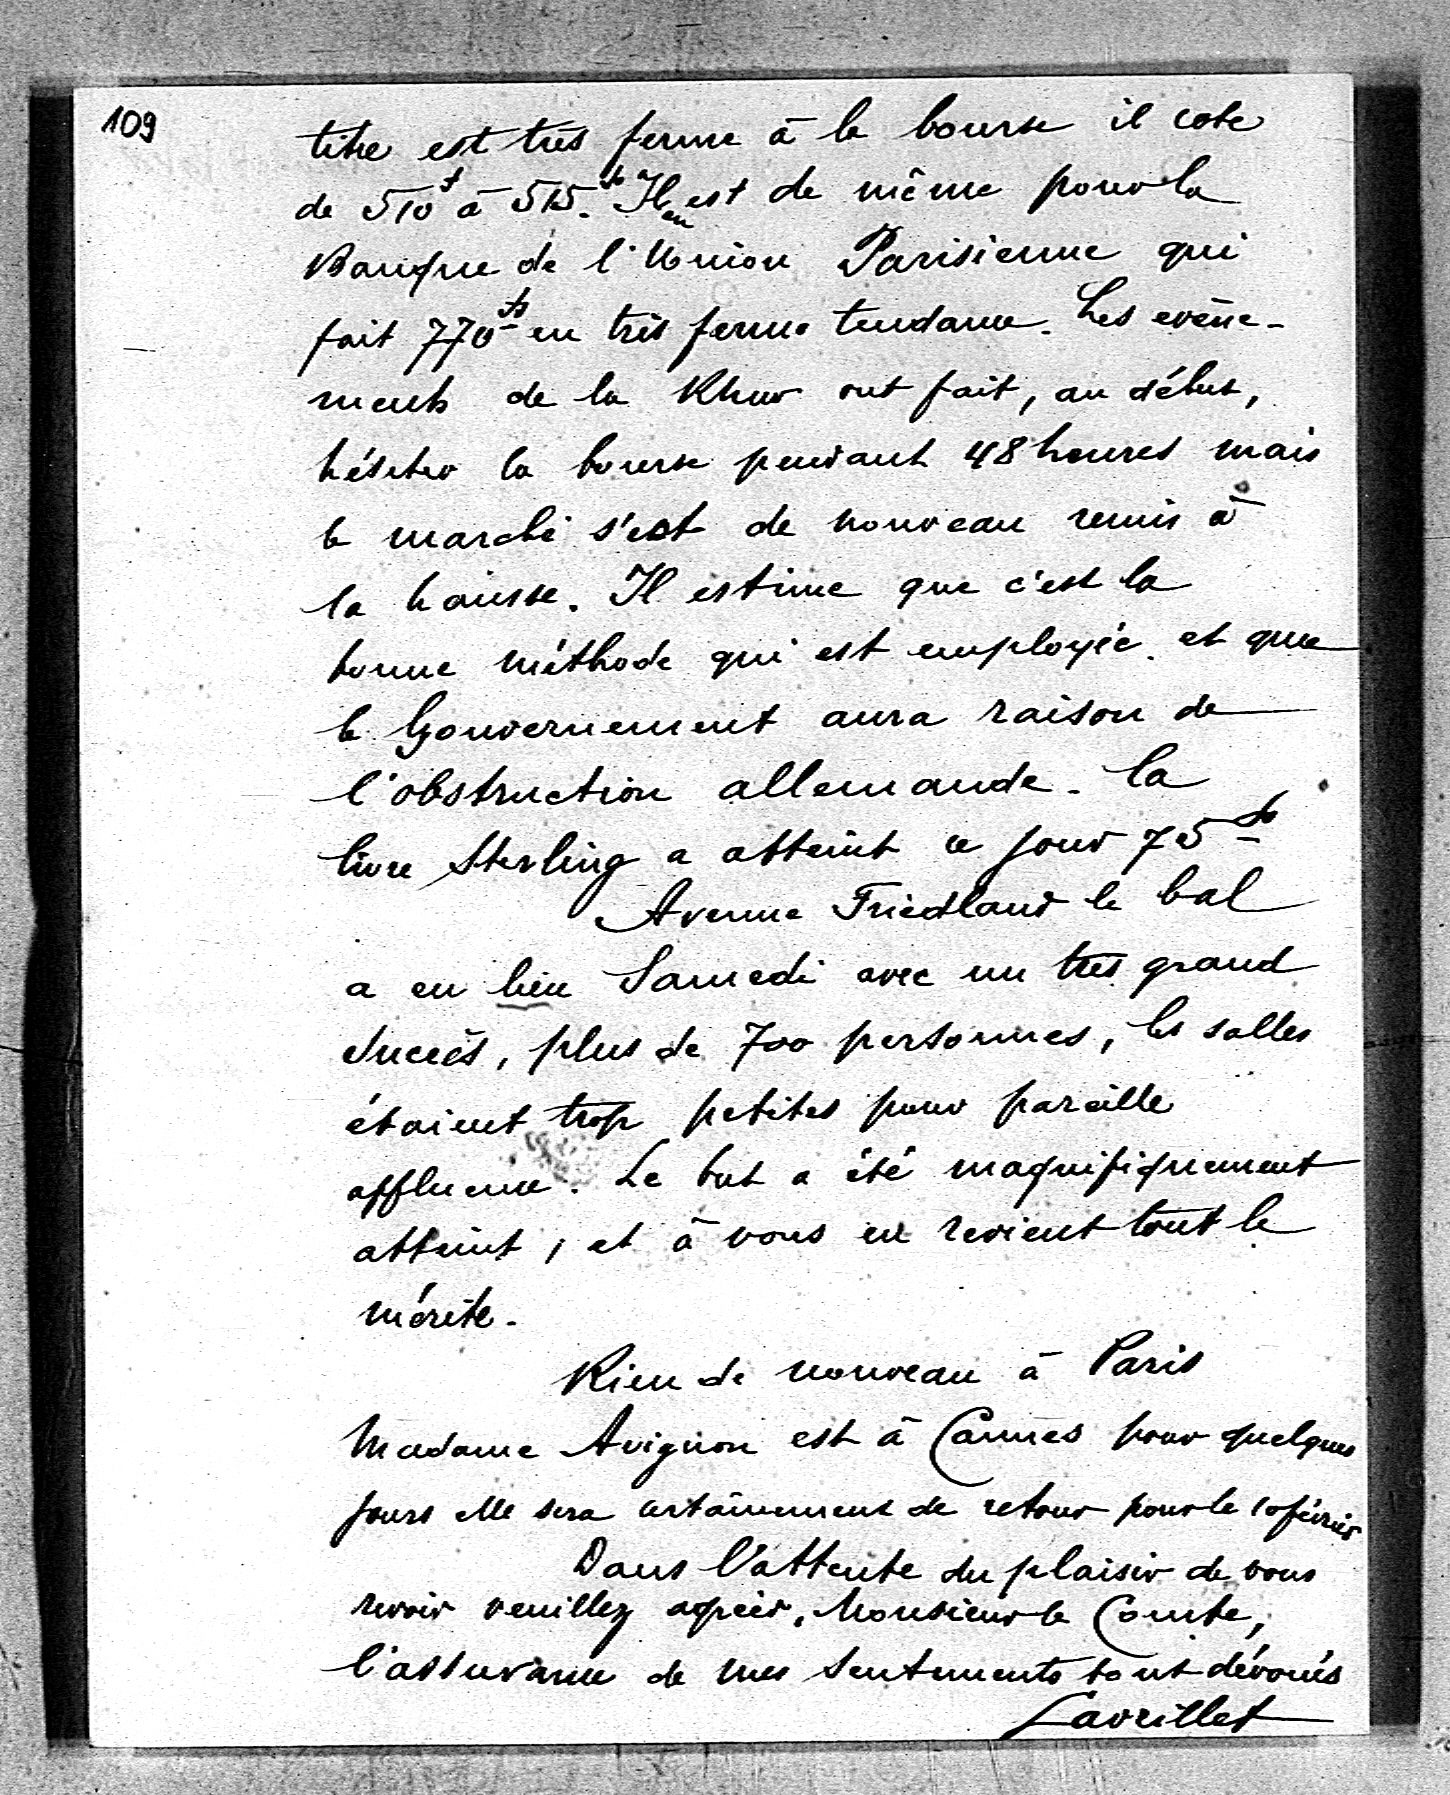 109
titre est très ferme à la bourse il cote
de 510f à 515.fs Il en est de même pour la
Banque de l'Union Parisienne qui
fait 770fs en très ferme tendance. Les evène-
ments de la Rhur ont fait, au début,
hésiter la bourse pendant 48 heures mais
le marché s'est de nouveau remis à
la hausse. Il estime que c'est la
bonne méthode qui est employée. et que
le Gouvernement aura raison de
l'obstruction allemande. La
livre Sterling a atteint ce jour 75fs
Avenue Friedland le bal
a eu lieu Samedi avec un très grand
Succès, plus de 700 personnes, les salles
étaient trop petites pour pareille
affluence. Le but a été magnifiquement
atteint, et à vous en revient tout le
mérite.
Rien de nouveau à Paris
Madame Avignon est à Cannes pour quelques
jours elle sera certainement de retour pour le 10 février
Dans l'attente du plaisir de vous
revoir veuillez agréer, Monsieur le Comte,
l'assurance de mes Sentiments tout dévoués
Lavrillet